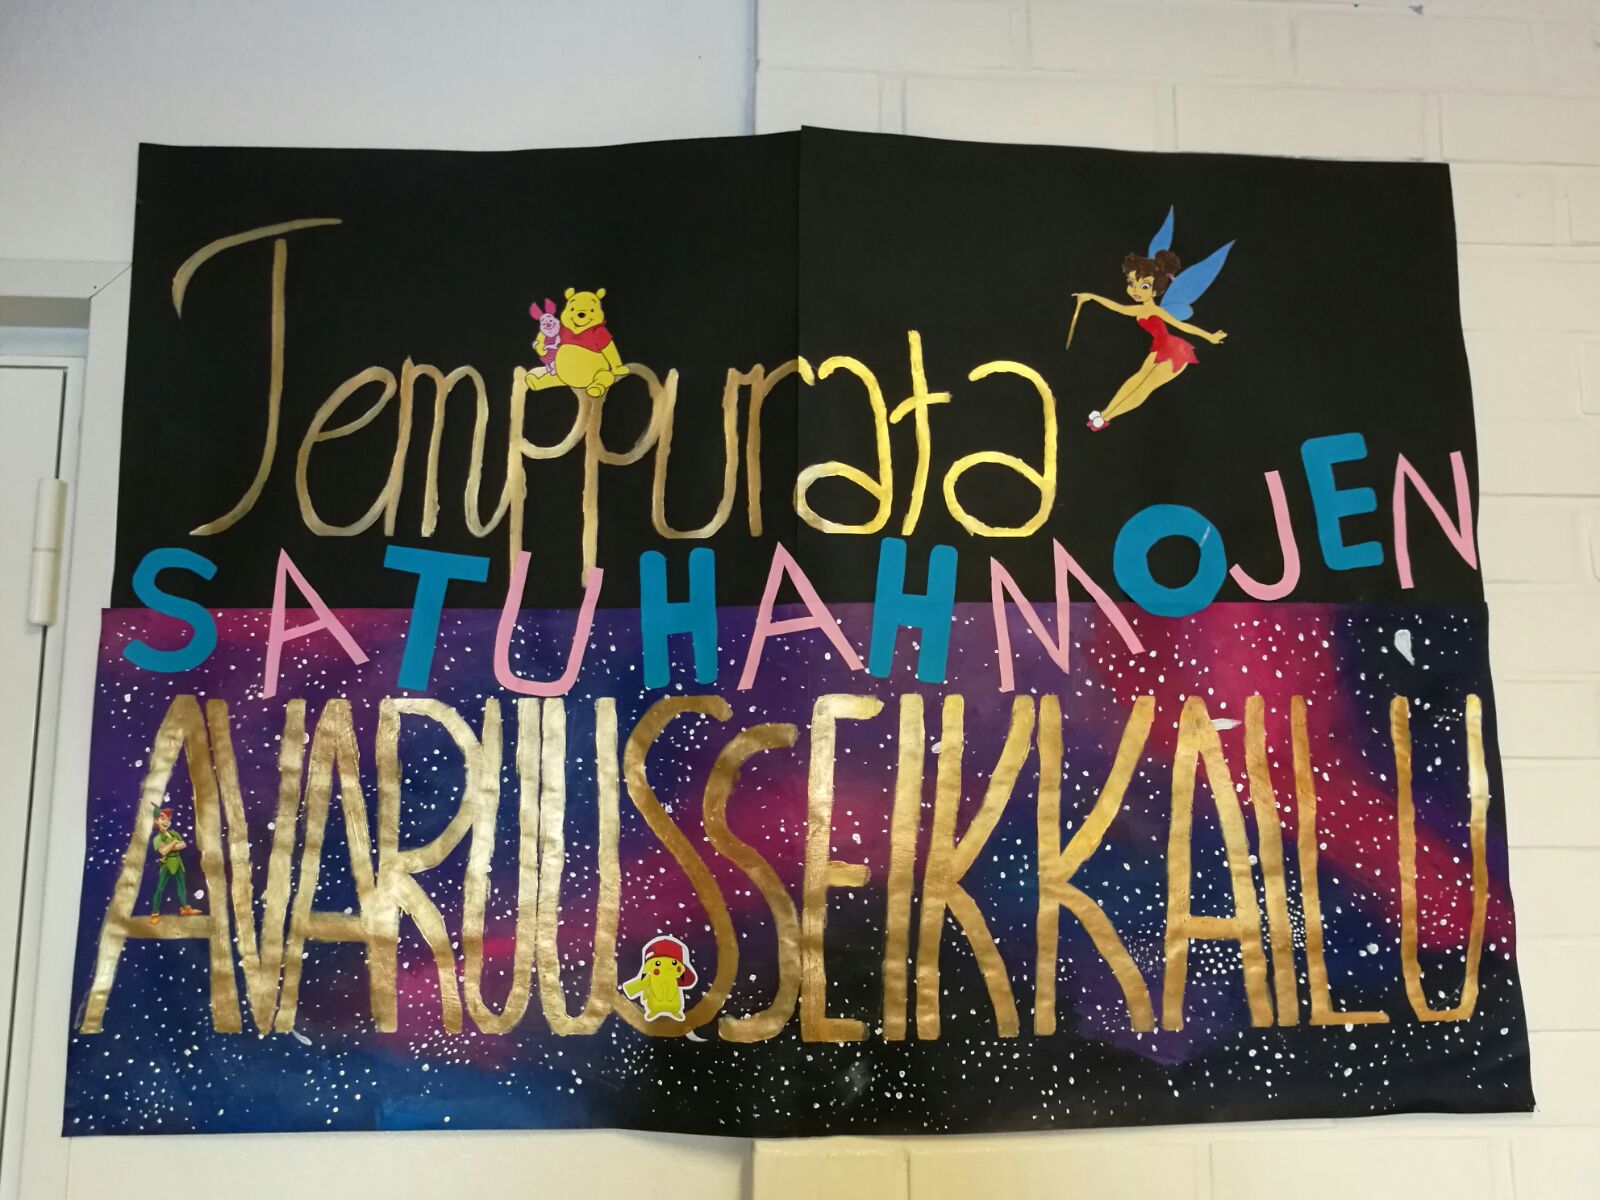 Temppurata
SATUHAHMOJEN
AVARUUSSEIKKAILU